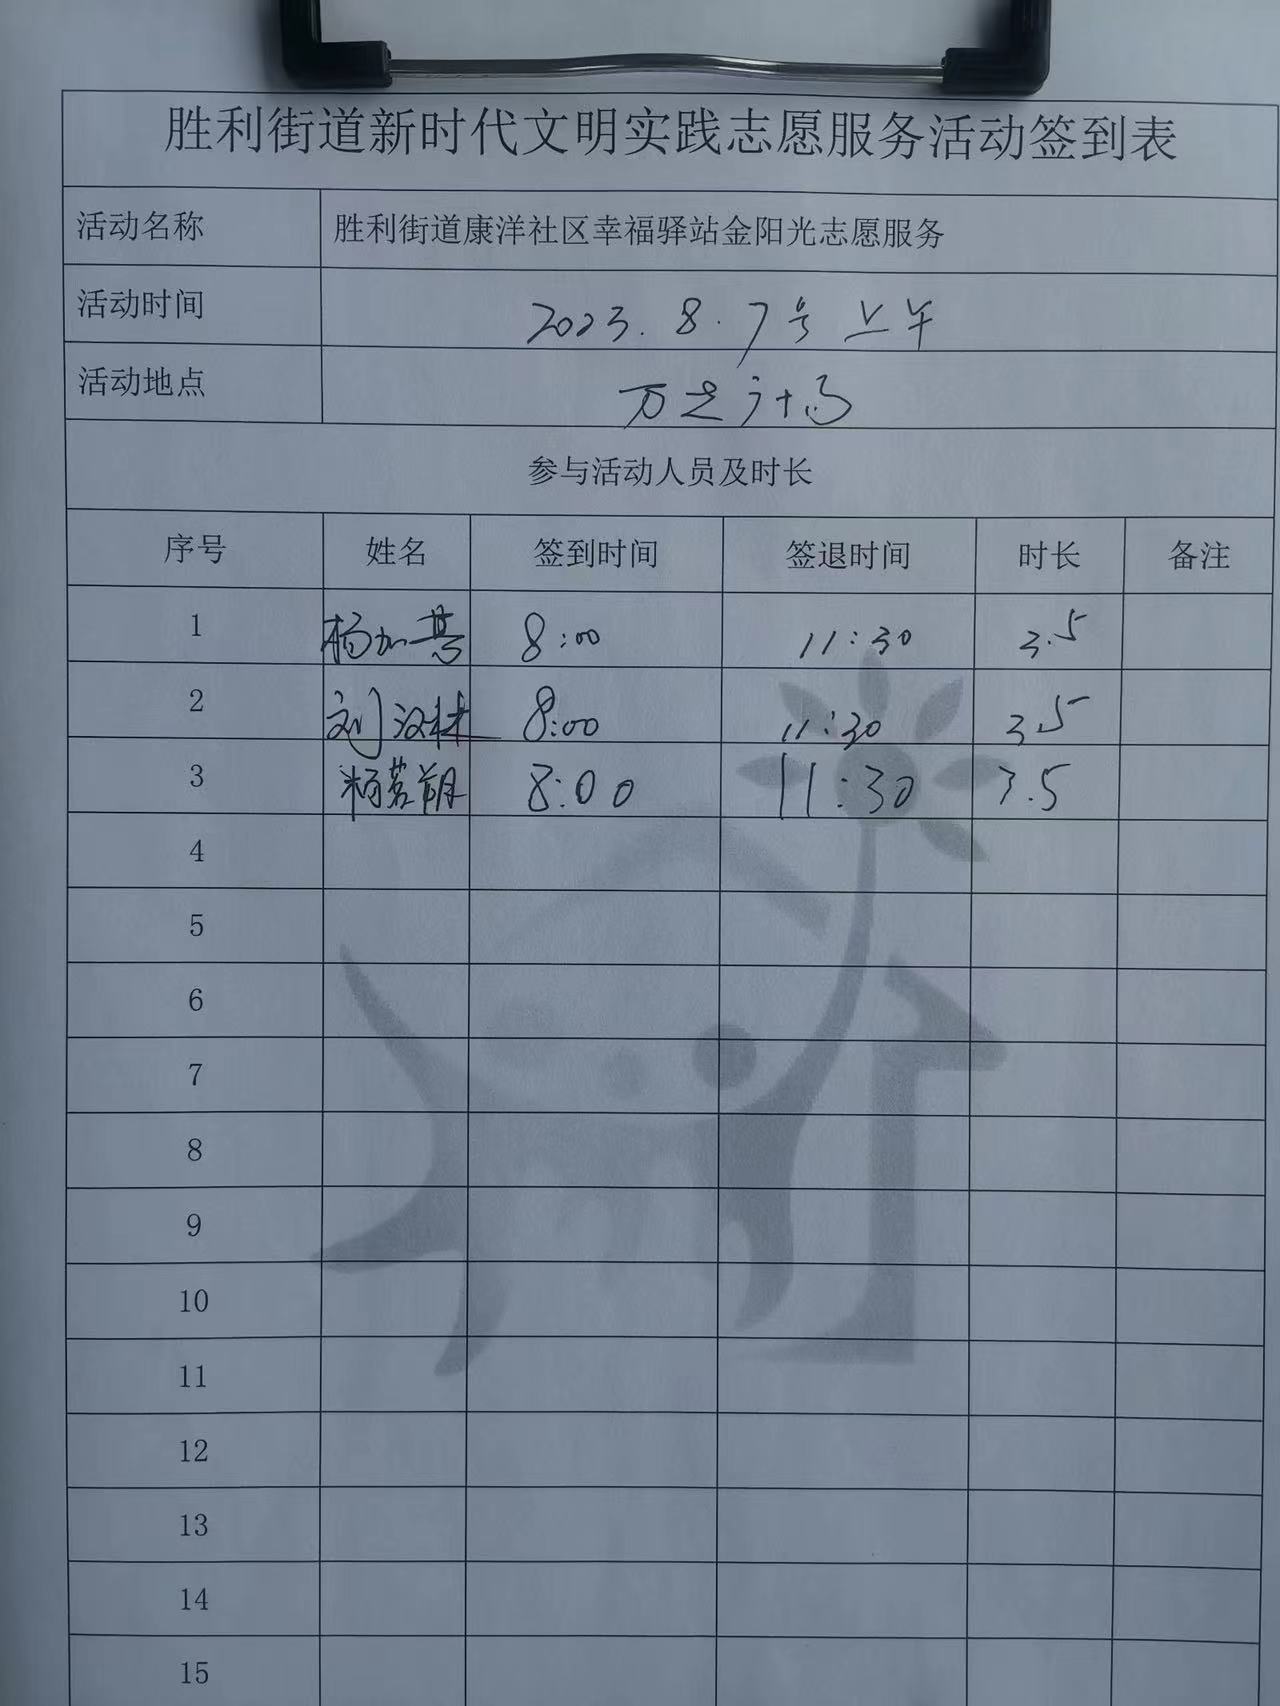 胜利街道新时代文明实践志愿服务活动签到表
活动名称 胜利街道康洋社区幸福驿站金阳光志愿服务
活动时间 2023.8.7号上午
活动地点 万达广场
参与活动人员及时长
序号 姓名 签到时间 签退时间 时长 备注
1 杨加 8:00 11:30 3.5
2 刘汉林 8:00 11:30 3.5
3 杨茗 8:00 11:30 3.5
4
5
6
7
8
9
10
11
12
13
14
15